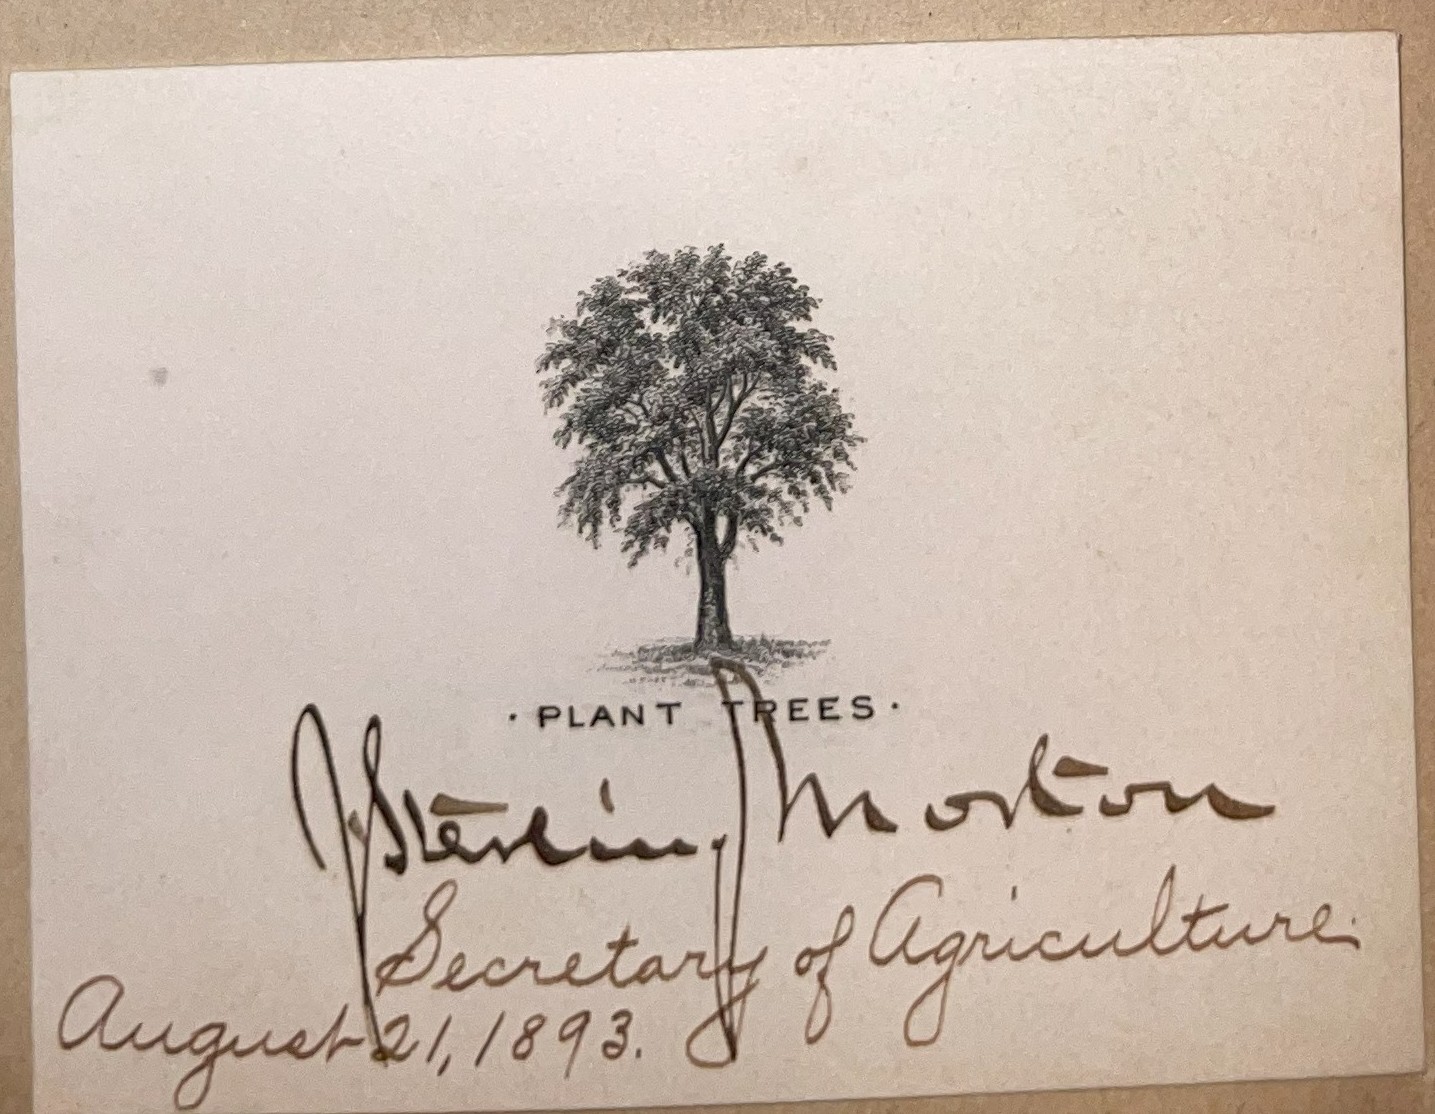 · PLANT TREES ·
J. Sterling Morton
Secretary of Agriculture.
August 21, 1893.